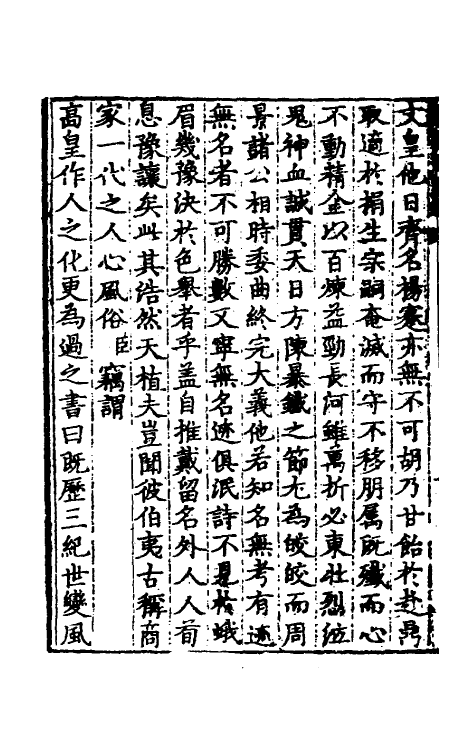 文皇他日齊名楊蹇亦無不可胡乃甘飴於赴鼎
取適於捐生宗嗣奄滅而守不移朋屬既殲而心
不動精金以百煉益勁長河雖萬折必東壯烈泣
鬼神血誠貫天日方陳暴鐵之節尤為皎皎而周
景諸公相時委曲終完大義他若知名無考有迹
無名者不可勝數又寧無名迹俱泯詩不見拾蛾
眉幾豫決於色舉者乎蓋自推戴留名外人人荀
息豫讓矣此其浩然天植夫豈聞彼伯夷古稱商
家一代之人心風俗臣竊謂
高皇作人之化更為過之書曰既歷三紀世變風